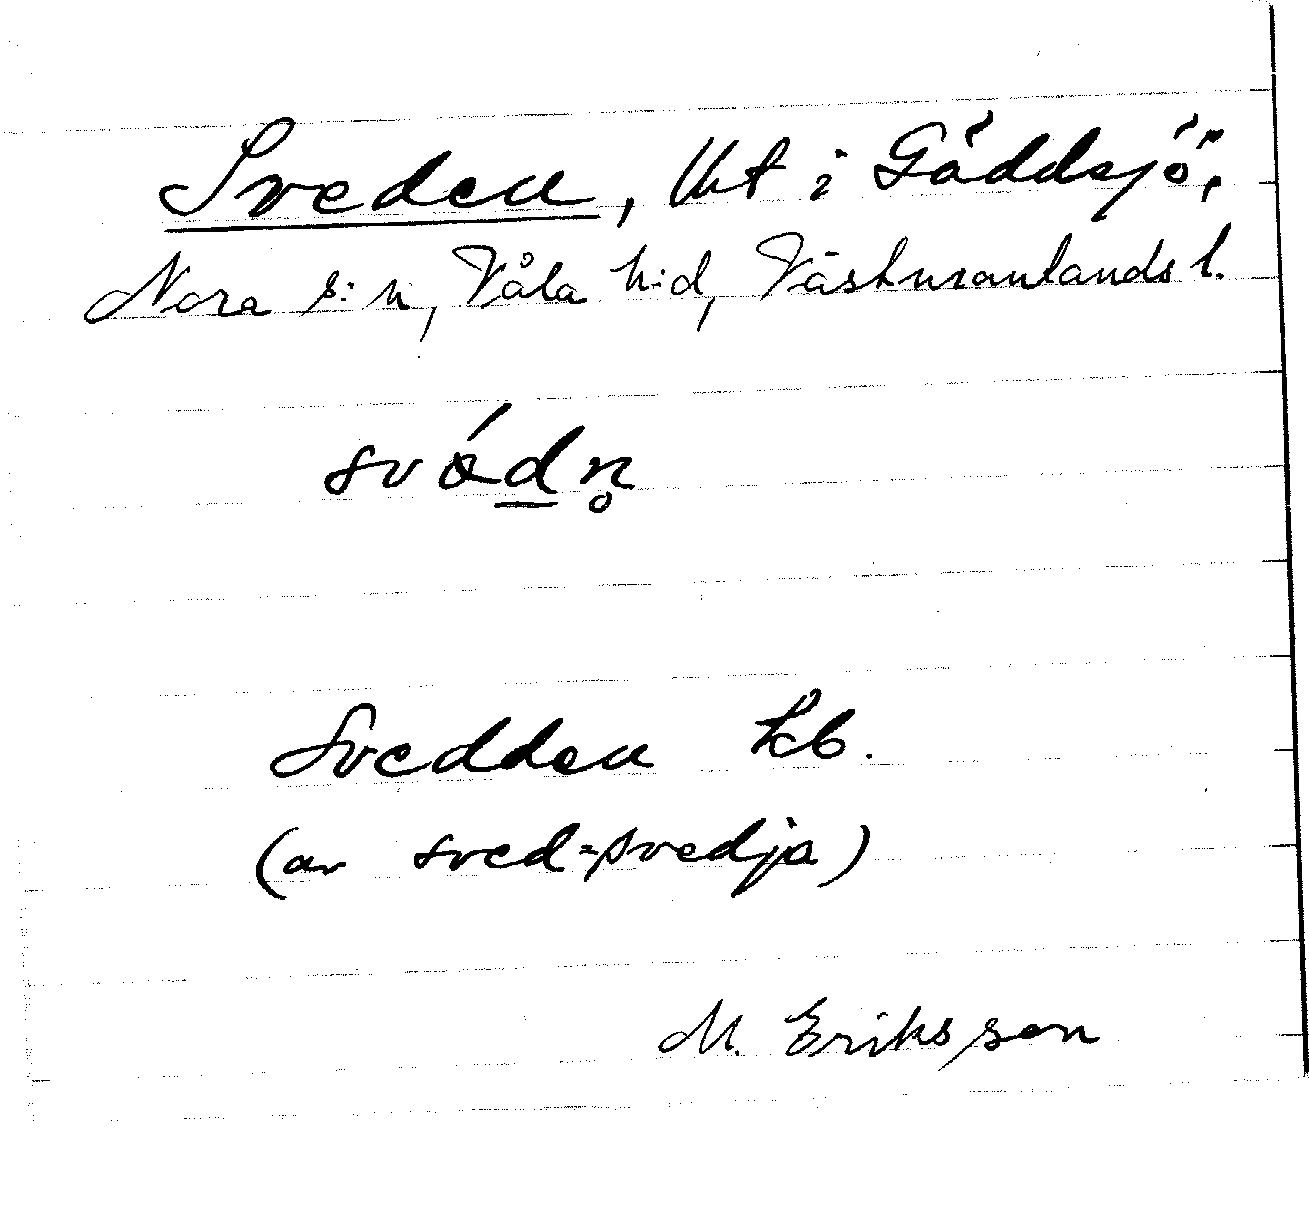 Sveden, Vkt i Gäddsjö,
Nora s:n, Våla h:d, Västmanlands l.
svédn̥
Svedden
(av sved=svedja)
M. Eriksson